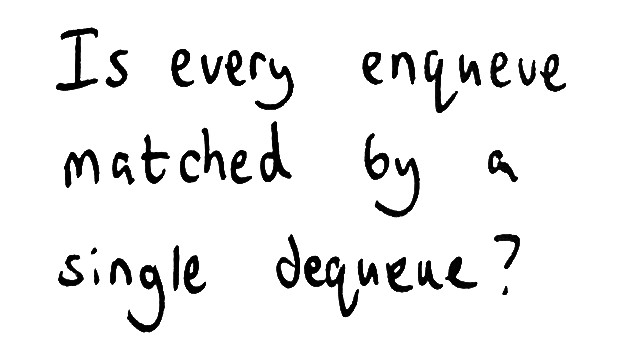 Is every enqueue
matched by a
single dequeue?